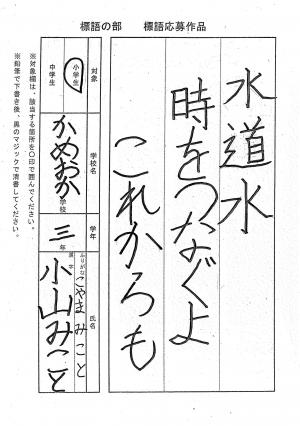 標語の部　標語応募作品
水道水
時をつなぐよ
これからも
対象
小学生
中学生
学校名
かめおか
学校
学年
三年
氏名
ふりがな
こやま みこと
漢字
小山みこと
※対象欄は、該当する箇所を〇印で囲んでください。
※鉛筆で下書き後、黒のマジックで清書してください。